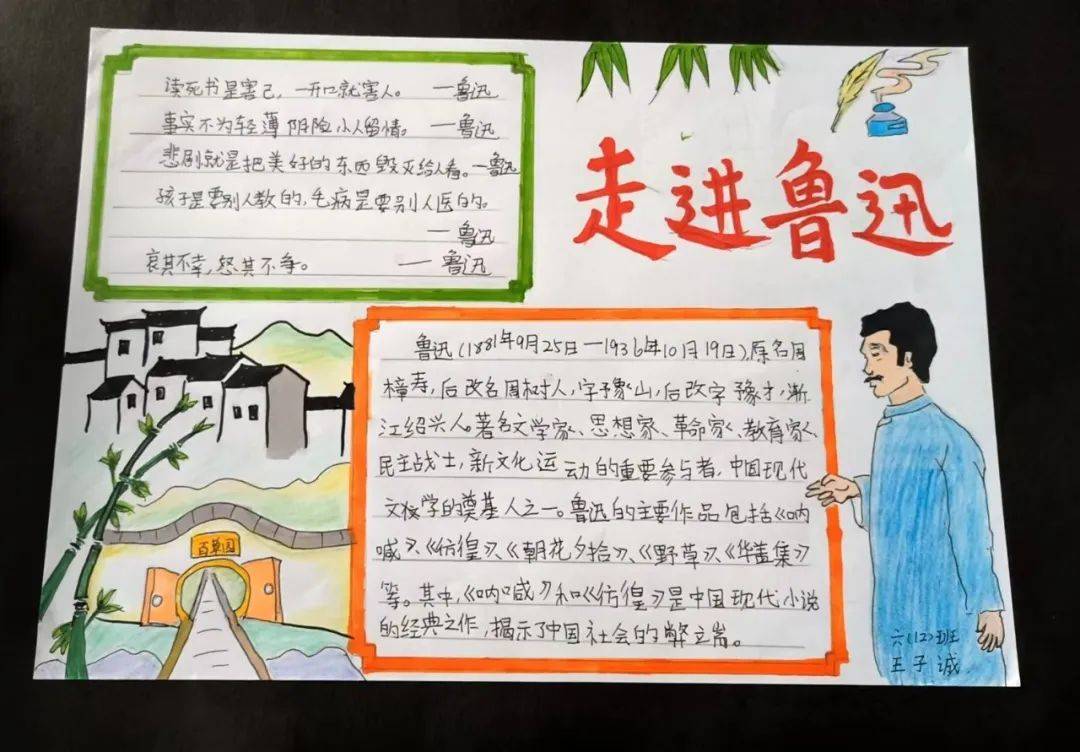 读死书是害己，一开口就害人。 —鲁迅
事实不为轻薄阴险小人留情。 —鲁迅
悲剧就是把美好的东西毁灭给人看。—鲁迅
孩子是要别人教的，毛病是要别人医的。
—鲁迅
哀其不幸，怒其不争。 —鲁迅
走进鲁迅
鲁迅(1881年9月25日—1936年10月19日)，原名周
樟寿，后改名周树人，字豫山，后改字豫才，浙
江绍兴人。著名文学家、思想家、革命家、教育家、
民主战士，新文化运动的重要参与者，中国现代
文学的奠基人之一。鲁迅的主要作品包括《呐
喊》、《彷徨》、《朝花夕拾》、《野草》、《华盖集》
等。其中，《呐喊》和《彷徨》是中国现代小说
的经典之作，揭示了中国社会的弊端。
百草园
六(12)班
王子诚